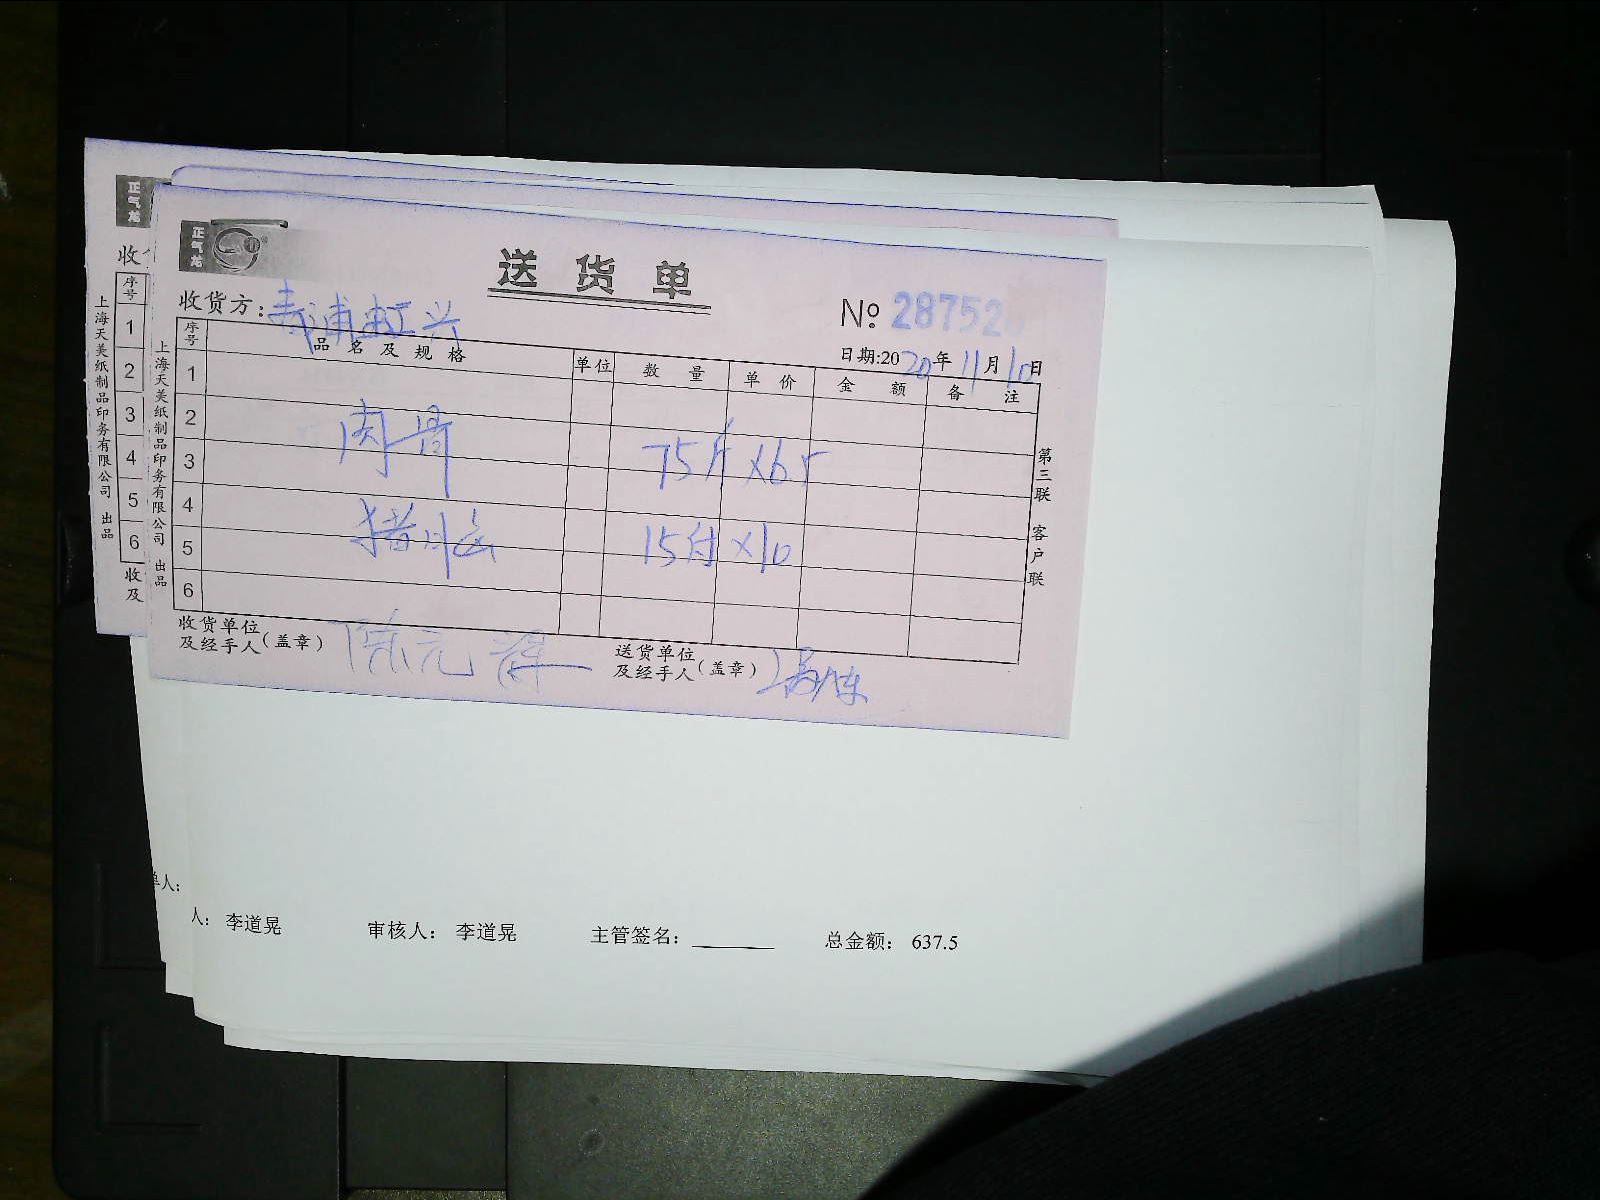 正气龙
正气龙
送货单
收货方：
№ 28752
日期:2020年11月10日
序号 品名及规格 单位 数量 单价 金额 备注
1
2
肉骨
3
75斤 ×6.5
4
猪脑
5
15付 ×10
6
收货单位
及经手人(盖章)
陈元
送货单位
及经手人(盖章)
第三联 客户联
上海天美纸制品印务有限公司 出品
收
序号
1
2
3
4
5
6
收
及
上海天美纸制品印务有限公司 出品
单人:
人: 李道晃 审核人: 李道晃 主管签名: 总金额: 637.5